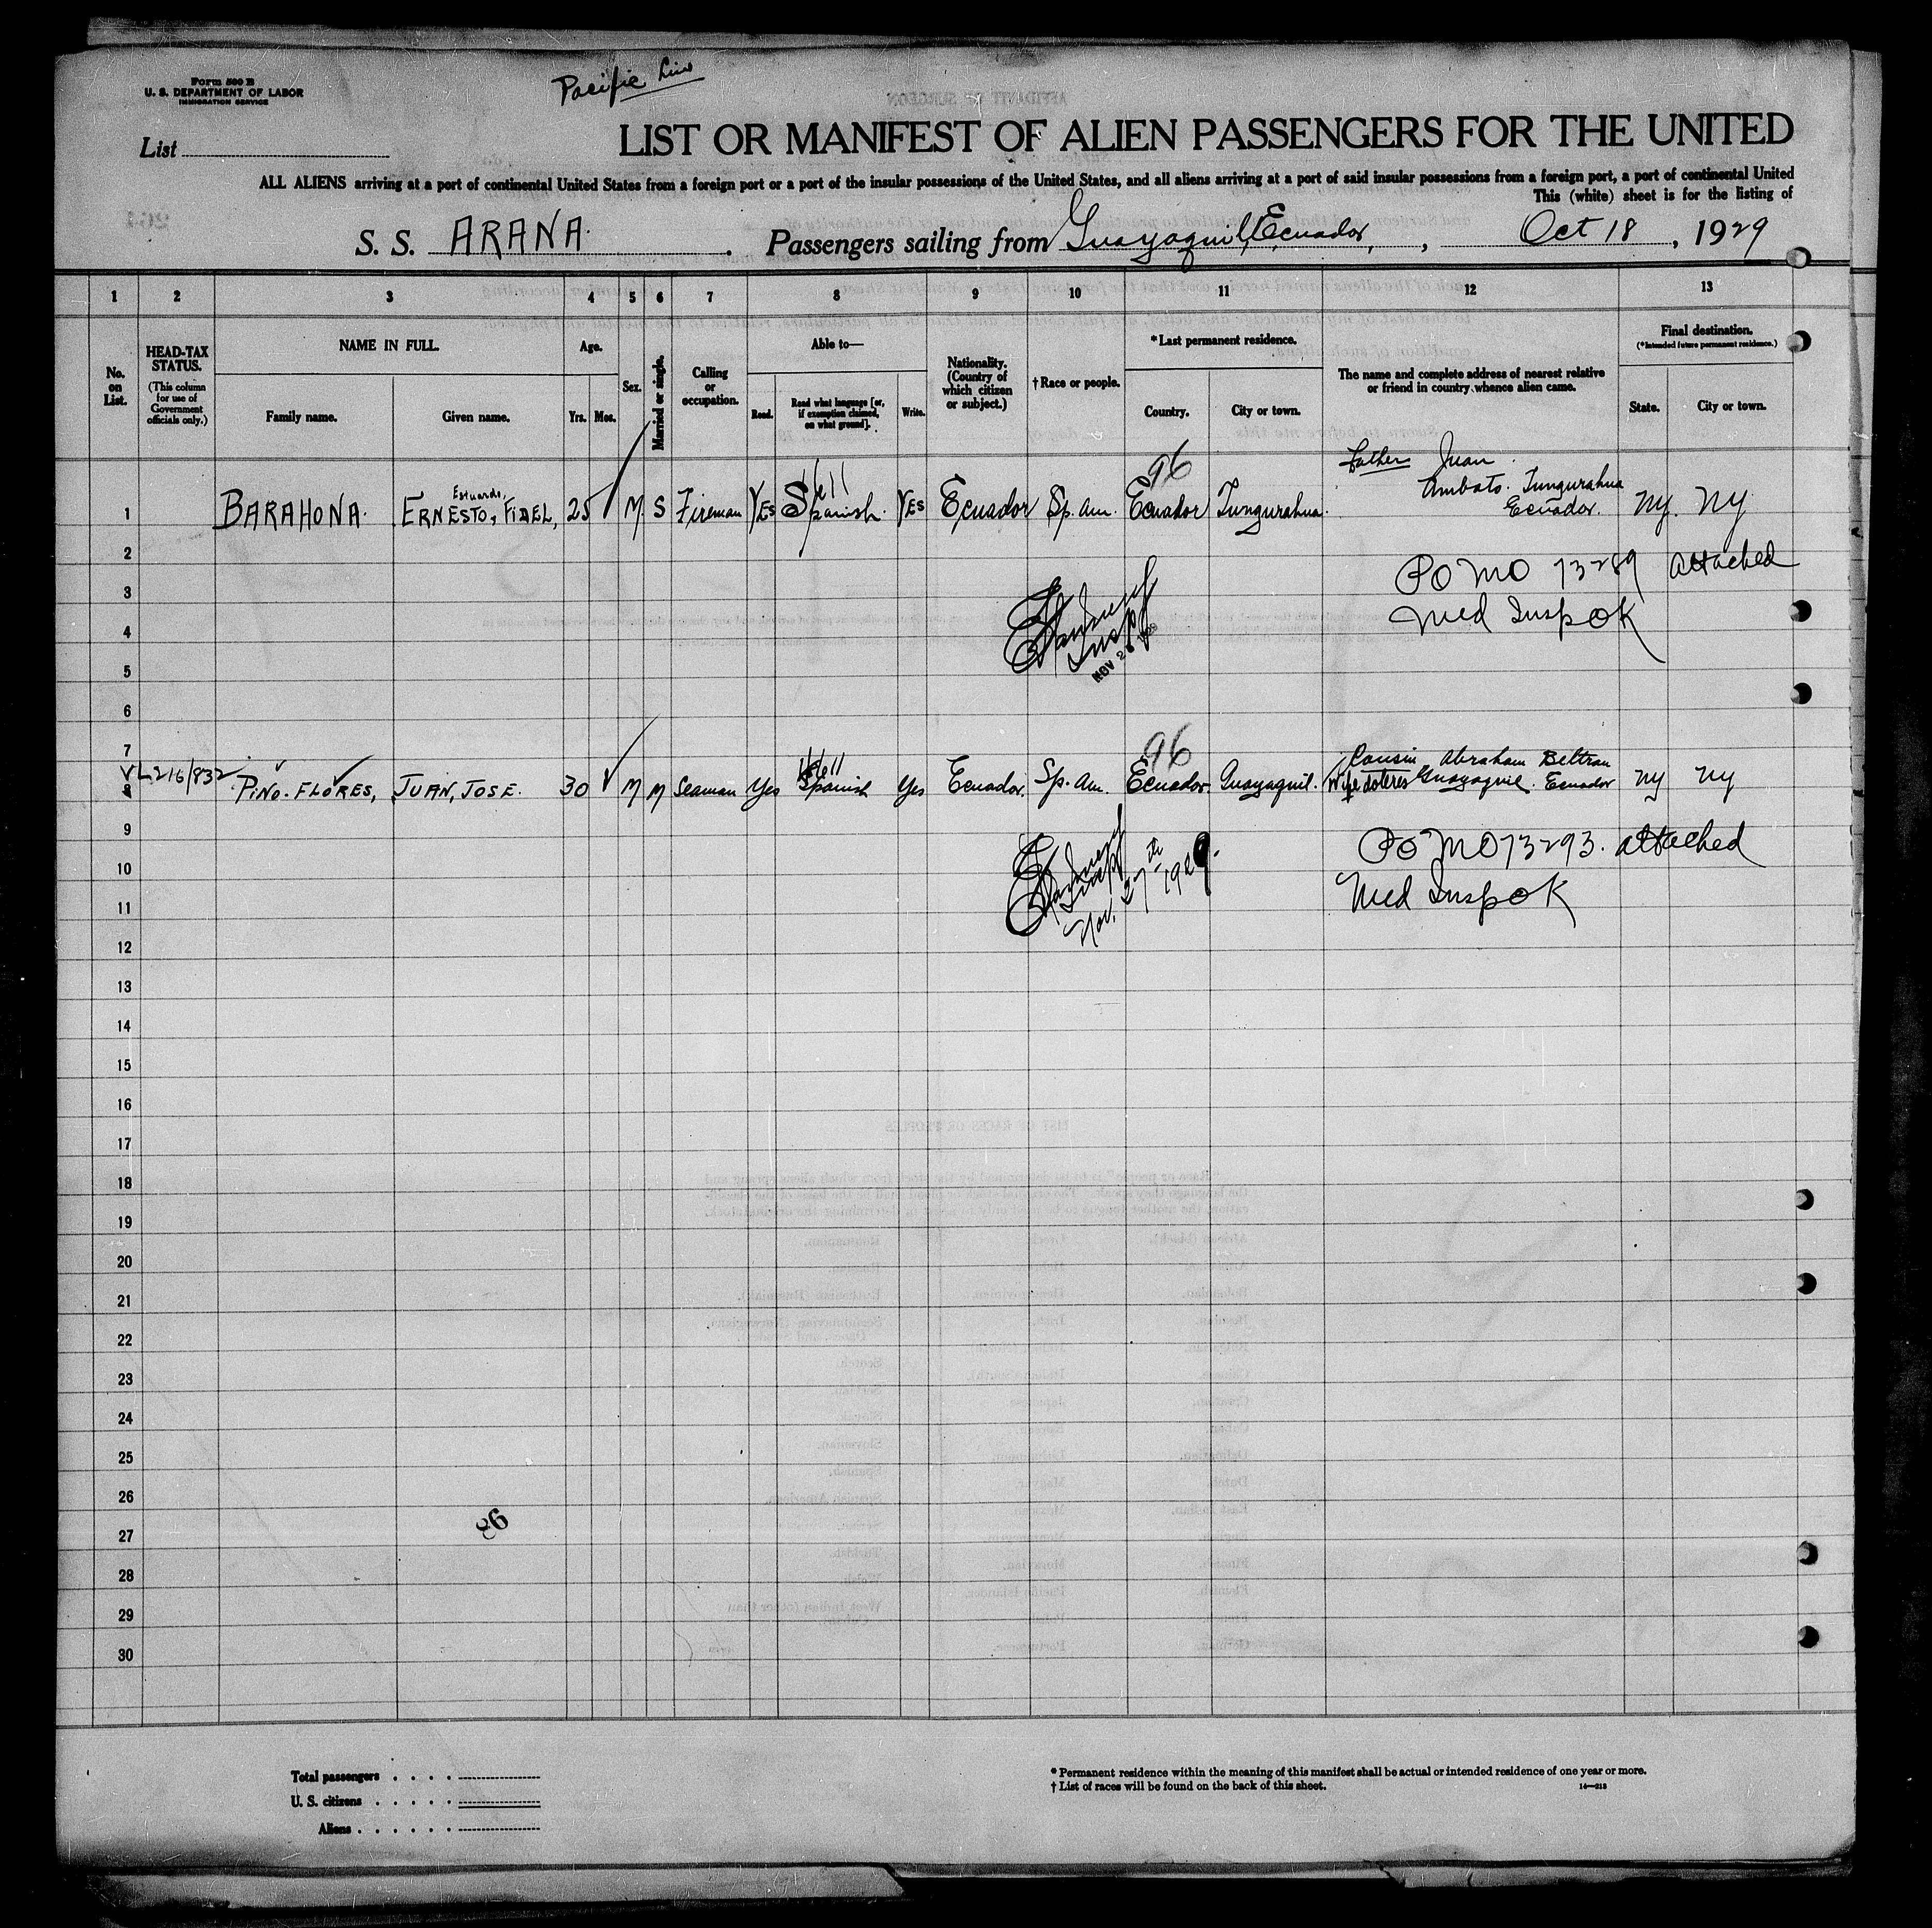 Form 500 B
U. S. DEPARTMENT OF LABOR
IMMIGRATION SERVICE
Pacific Line
List
LIST OR MANIFEST OF ALIEN PASSENGERS FOR THE UNITED
ALL ALIENS arriving at a port of continental United States from a foreign port or a port of the insular possessions of the United States, and all aliens arriving at a port of said insular possessions from a foreign port, a port of continental United
This (white) sheet is for the listing of
S. S. ARANA. Passengers sailing from Guayaquil, Ecuador, , Oct 18, 1929
1 2 3 4 5 6 7 8 9 10 11 12 13
No. on List.
HEAD-TAX STATUS.
(This column for use of Government officials only.)
NAME IN FULL.
Family name. Given name.
Age.
Yrs. Mos.
Sex.
Married or single.
Calling or occupation.
Able to—
Read. Read what language [or, if exemption claimed, on what ground]. Write.
Nationality. (Country of which citizen or subject.)
†Race or people.
*Last permanent residence.
Country. City or town.
The name and complete address of nearest relative or friend in country whence alien came.
Final destination.
(*Intended future permanent residence.)
State. City or town.
96
Father Juan
Ambato. Tungurahua
Ecuador.
1 BARAHONA. ERNESTO, FIDEL, 25 M S Fireman Yes Spanish. Yes Ecuador Sp. am. Ecuador Tungurahua. NY. NY
2
PO MO 73289 attached
3
Insp
Med Insp OK
4
NOV 2
5
6
7
96
Cousin Abraham Beltran
8 216/832 PINO-FLORES, JUAN, JOSE. 30 M M Seaman Yes Spanish Yes Ecuador. Sp. am. Ecuador. Guayaquil. Wife Guayaquil. Ecuador NY NY
9
PO MO 73293. attached
10
Insp
Nov. 27th 1929.
Med Insp OK
11
12
13
14
15
16
17
18
19
20
21
22
23
24
25
26
86
27
28
29
30
Total passengers . . . .
U. S. citizens . . . . .
Aliens . . . . . .
* Permanent residence within the meaning of this manifest shall be actual or intended residence of one year or more.
† List of races will be found on the back of this sheet. 14—213